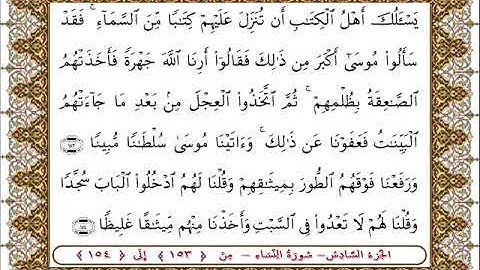 يَسْـَٔلُكَ أَهْلُ ٱلْكِتَٰبِ أَن تُنَزِّلَ عَلَيْهِمْ كِتَٰبًا مِّنَ ٱلسَّمَآءِ ۚ فَقَدْ
سَأَلُوا۟ مُوسَىٰٓ أَكْبَرَ مِن ذَٰلِكَ فَقَالُوٓا۟ أَرِنَا ٱللَّهَ جَهْرَةً فَأَخَذَتْهُمُ
ٱلصَّٰعِقَةُ بِظُلْمِهِمْ ۚ ثُمَّ ٱتَّخَذُوا۟ ٱلْعِجْلَ مِنۢ بَعْدِ مَا جَآءَتْهُمُ
ٱلْبَيِّنَٰتُ فَعَفَوْنَا عَن ذَٰلِكَ ۚ وَءَاتَيْنَا مُوسَىٰ سُلْطَٰنًا مُّبِينًا ﴿١٥٣﴾
وَرَفَعْنَا فَوْقَهُمُ ٱلطُّورَ بِمِيثَٰقِهِمْ وَقُلْنَا لَهُمُ ٱدْخُلُوا۟ ٱلْبَابَ سُجَّدًا
وَقُلْنَا لَهُمْ لَا تَعْدُوا۟ فِى ٱلسَّبْتِ وَأَخَذْنَا مِنْهُم مِّيثَٰقًا غَلِيظًا ﴿١٥٤﴾
الجزء السادس – سورة النساء – مِنْ ﴿ ١٥٣ ﴾ إلَى ﴿ ١٥٤ ﴾